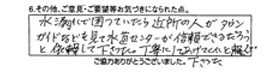 6.その他、ご意見・ご要望等お気づきになられた点。
水漏れで困っていたら近所の人がタウン
ガイドなどを見て水道センターが信頼できるだろう
と依頼して下さった。丁寧にしてあげてくれと頼んで
下さった。
ご協力ありがとうございました。